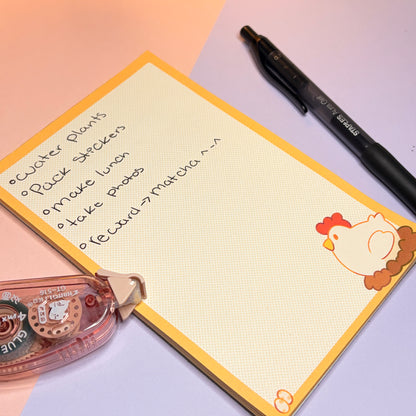 °water plants
°Pack stickers
°make lunch
°take photos
°reward→matcha ^-^
GLUE